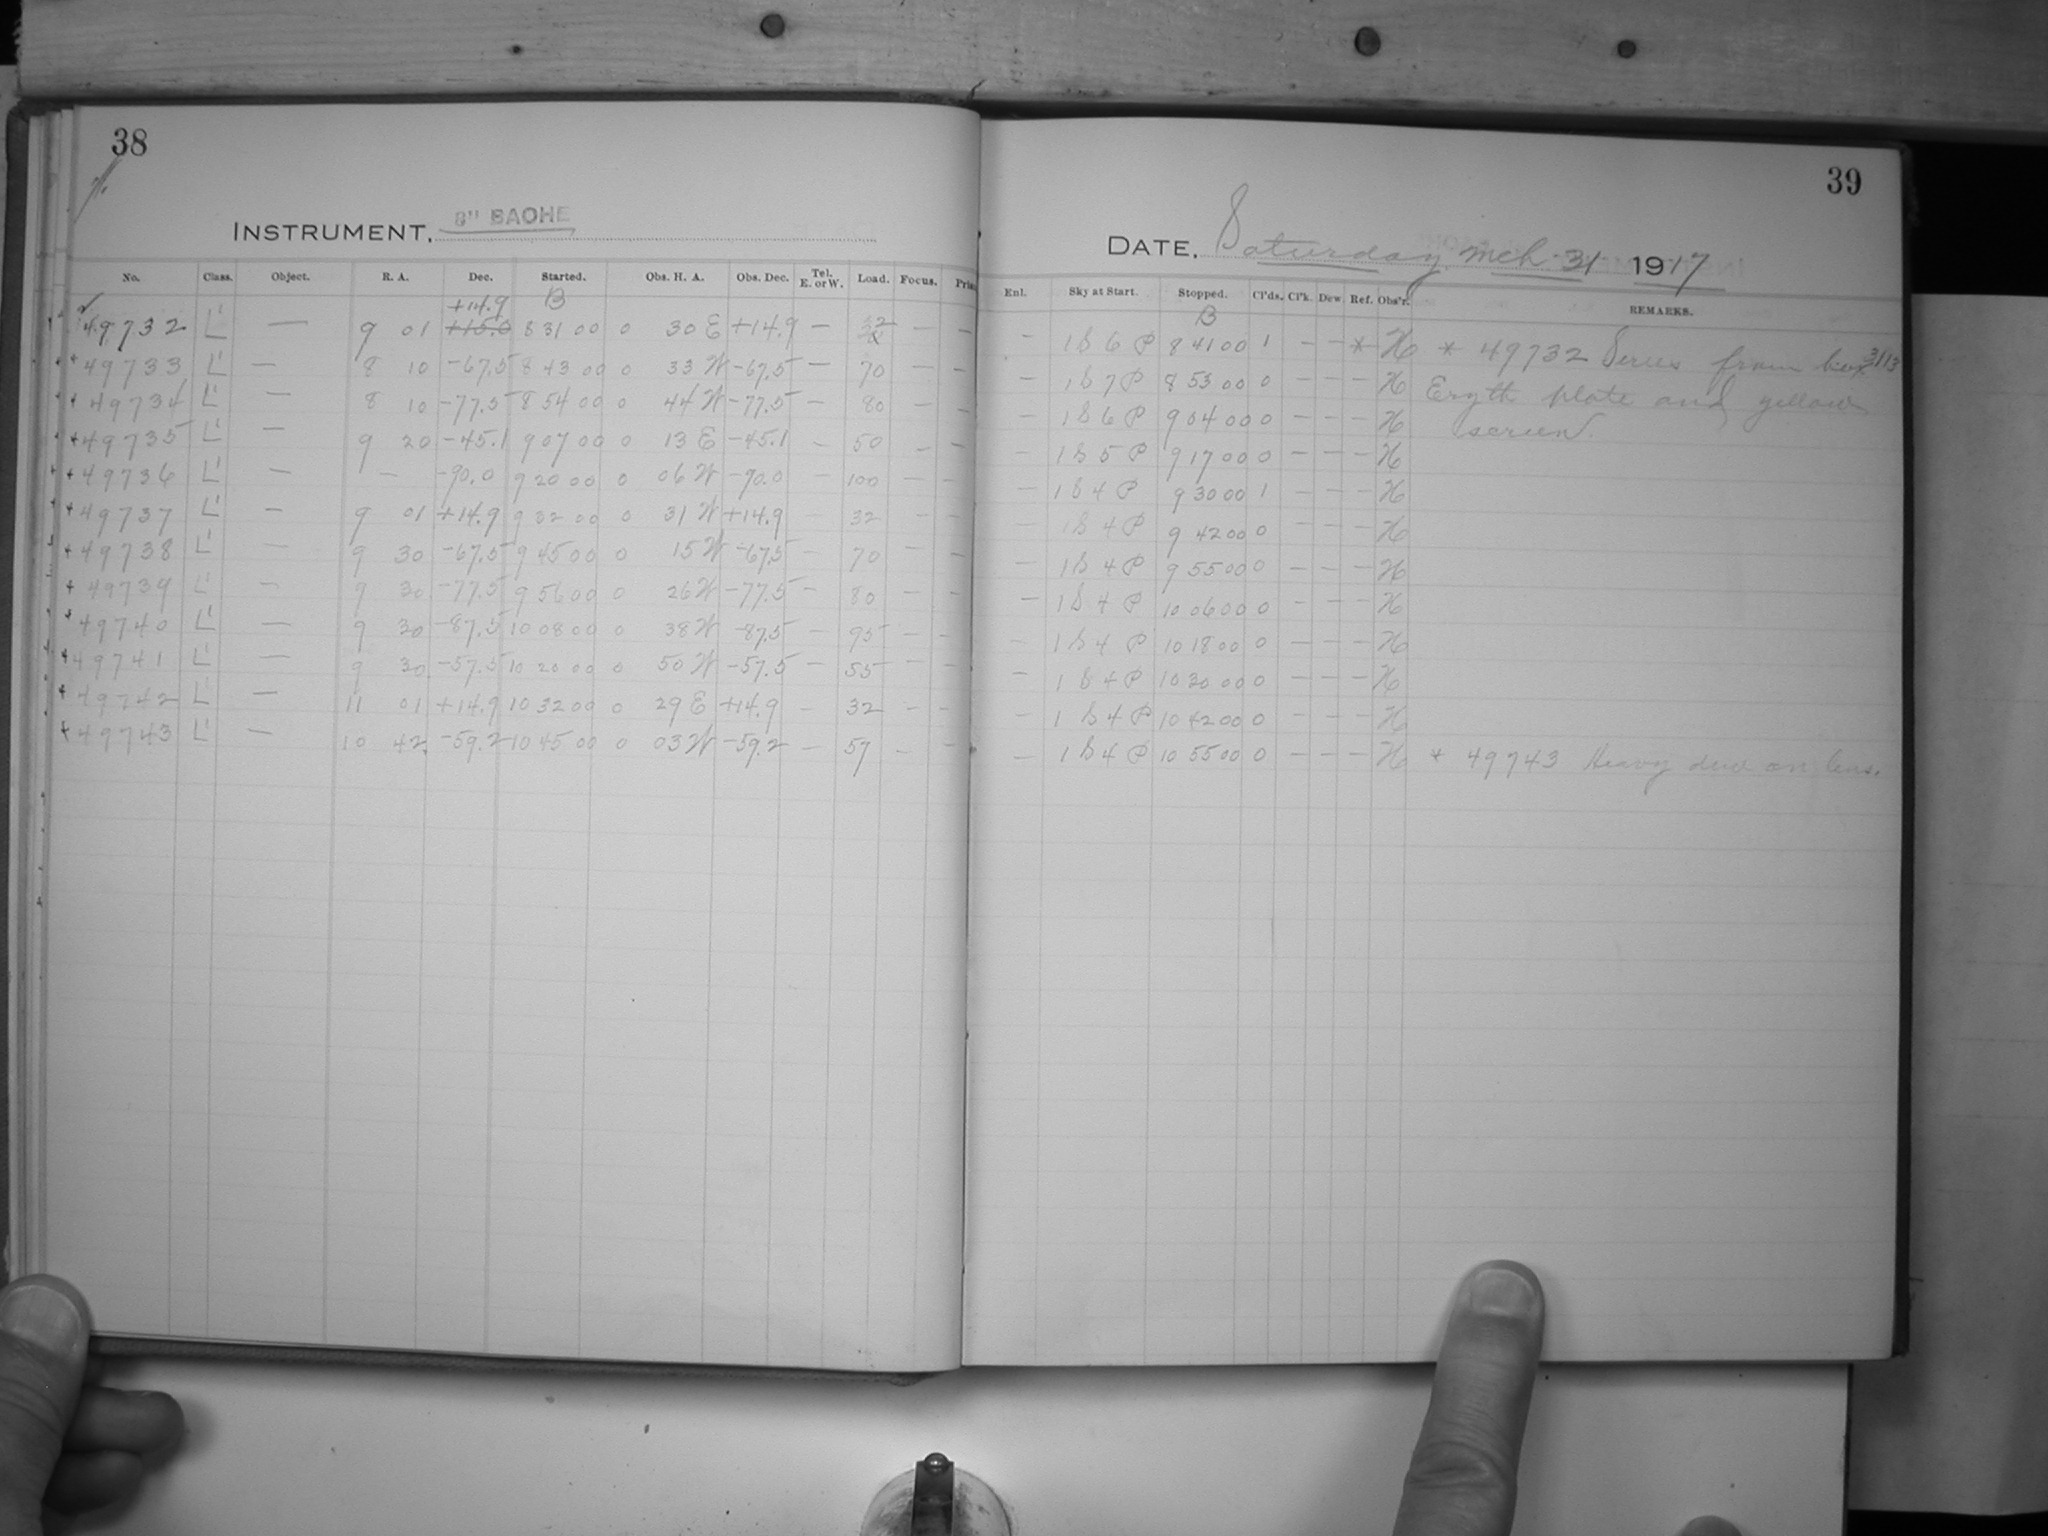 38
INSTRUMENT, 8" BACHE
No. Class. Object. R. A. Dec. Started. Obs. H. A. Obs. Dec. Tel. E. or W. Load. Focus.
+14.9 B
49732 L' — 9 01 +15.0 8 31 00 0 30 E +14.9 — 32 — —
49733 L' — 8 10 -67.5 8 43 00 0 33 W -67.5 — 70 — —
49734 L' — 8 10 -77.5 8 54 00 0 44 W -77.5 — 80 — —
49735 L' — 9 20 -45.1 9 07 00 0 13 E -45.1 — 50 — —
49736 L' — — -90.0 9 20 00 0 06 W -90.0 — 100 — —
49737 L' — 9 01 +14.9 9 32 00 0 31 W +14.9 — 32 — —
49738 L' — 9 30 -67.5 9 45 00 0 15 W -67.5 — 70 — —
49739 L' — 9 30 -77.5 9 56 00 0 26 W -77.5 — 80 — —
49740 L' — 9 30 -87.5 10 08 00 0 38 W -87.5 — 95 — —
49741 L' — 9 30 -57.5 10 20 00 0 50 W -57.5 — 55 — —
49742 L' — 11 01 +14.9 10 32 00 0 29 E +14.9 — 32 — —
49743 L' — 10 42 -59.2 10 45 00 0 03 W -59.2 — 57 — —
39
DATE, Saturday Mch 31 1917
Enl. Sky at Start. Stopped. Cl'ds. Cl'k. Dew. Ref. Obs'r. REMARKS.
B
— 1 S 6 P 8 41 00 1 — — * H * 49732 Series from box 3113
— 1 S 7 P 8 53 00 0 — — — H Eryth plate and yellow
— 1 S 6 P 9 04 00 0 — — — H screen.
— 1 S 5 P 9 17 00 0 — — — H
— 1 S 4 P 9 30 00 1 — — — H
— 1 S 4 P 9 42 00 0 — — — H
— 1 S 4 P 9 55 00 0 — — — H
— 1 S 4 P 10 06 00 0 — — — H
— 1 S 4 P 10 18 00 0 — — — H
— 1 S 4 P 10 30 00 0 — — — H
— 1 S 4 P 10 42 00 0 — — — H
— 1 S 4 P 10 55 00 0 — — — H * 49743 Heavy dew on lens.